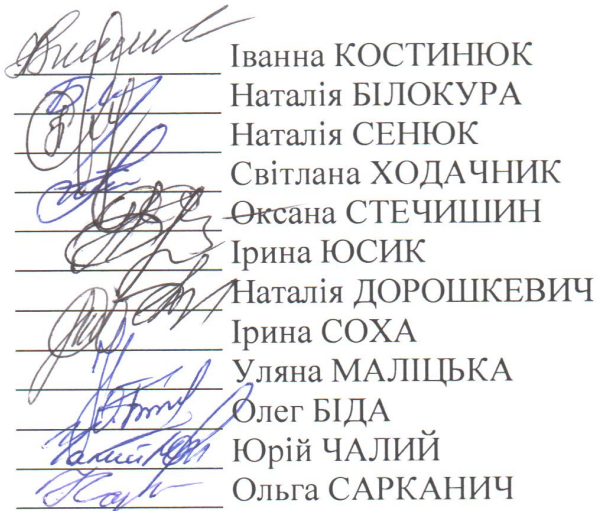 Іванна КОСТИНЮК
Наталія БІЛОКУРА
Наталія СЕНЮК
Світлана ХОДАЧНИК
Оксана СТЕЧИШИН
Ірина ЮСИК
Наталія ДОРОШКЕВИЧ
Ірина СОХА
Уляна МАЛІЦЬКА
Олег БІДА
Юрій ЧАЛИЙ
Ольга САРКАНИЧ